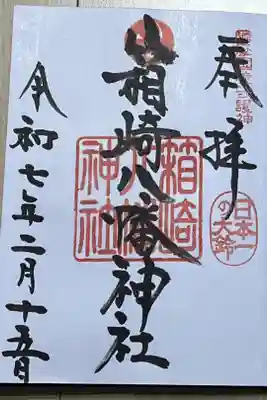 奉拝
日本一
の大鈴
箱崎八幡神社
箱崎
八幡
神社
令和七年二月十五日